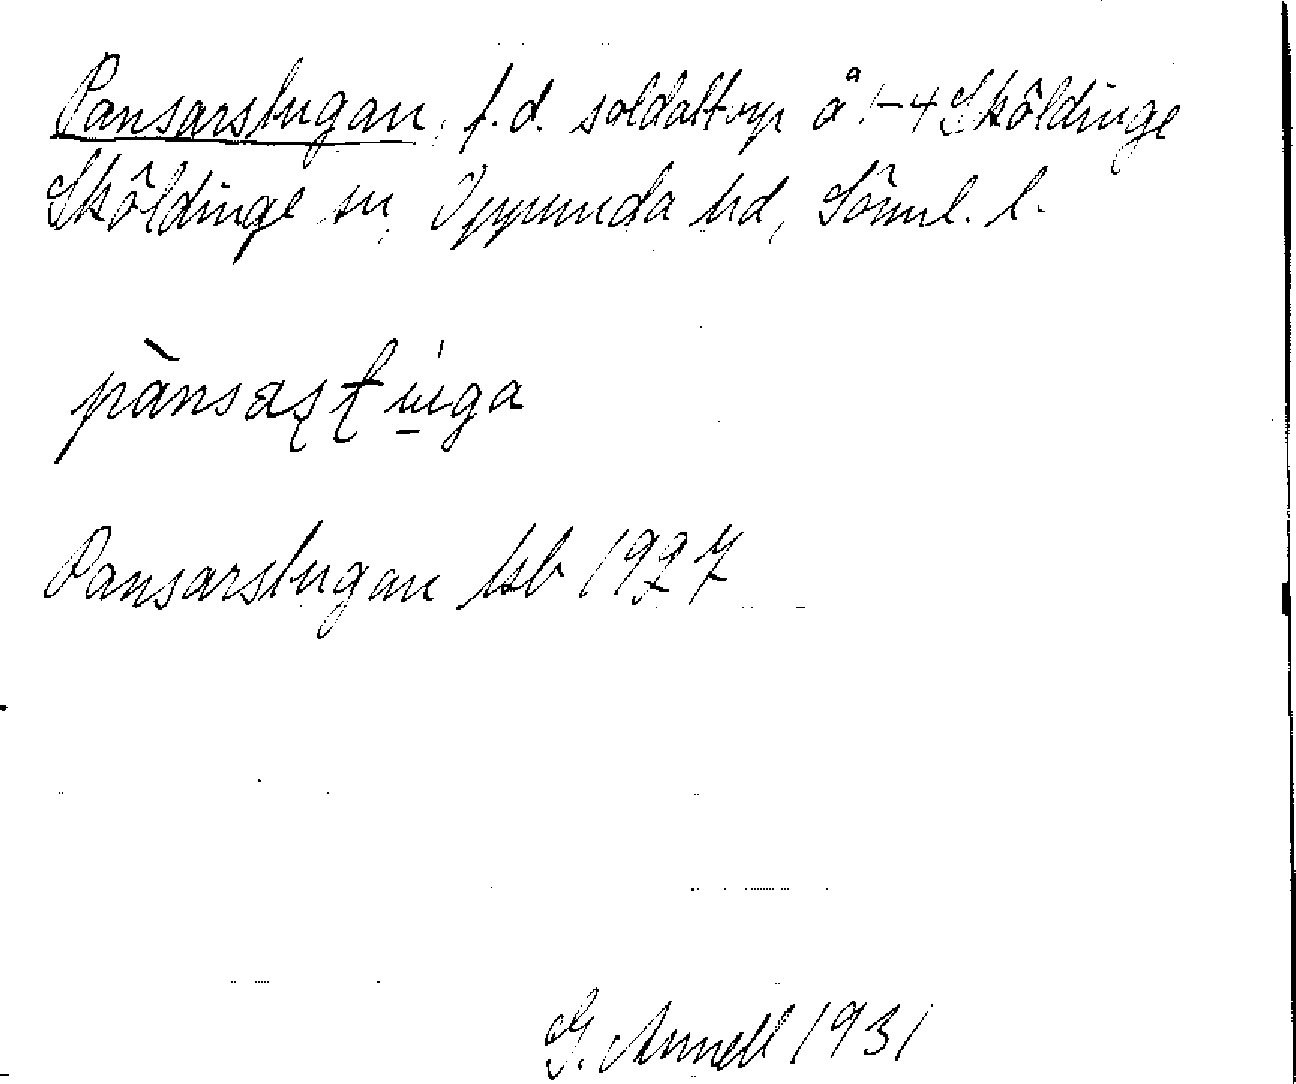 Pansarstugan, f.d. soldattorp å 1-4 Sköldinge
Sköldinge sn, Oppunda hd, Söml. l.
Pansarstugan ksb 1927
G. Annell 1931